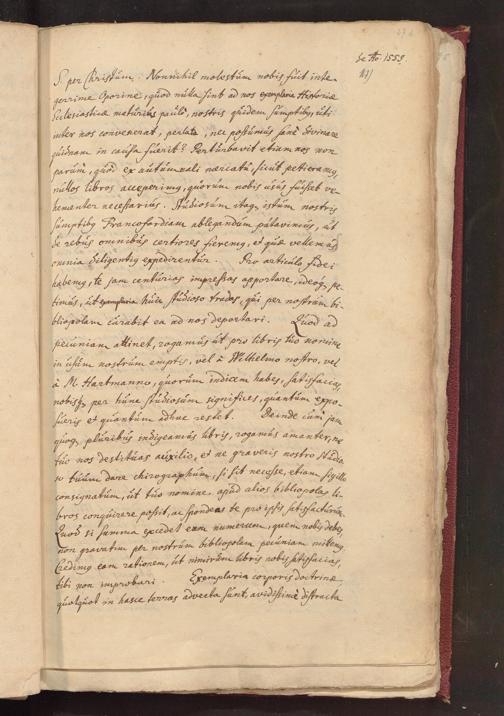 de Ao. 1559.
S. per Christum. Nonnihil molestum nobis fuit inte-
gerrime Oporine, quod nulla sint ad nos exemplaria Historiae
Ecclesiasticae maturius paulo, nostris quidem sumptibus, uti
inter nos convenerat, perlata, nec possumus sane divinare
quidnam in causa fuerit? Perturbavit etiam nos non
parum, quod ex autumnali mercatu, sicut petieramus,
nullos libros acceperimus, quorum nobis usus fuisset ve-
hementer necessarius. Studiosum itaque istum nostris
sumptibus Francofordiam ablegandum putavimus, ut
de rebus omnibus certiores fieremus, et quae vellemus
omnia diligentius expedirentur. Pro articulo fidei
habemus, te jam centurias impressas apportare, ideoque pe-
timus, ut exemplaria huic studioso tradas, qui per nostrum bi-
bliopolam curabit ea ad nos deportari. Quod ad
pecuniam attinet, rogamus ut pro libris tuo nomine
in usum nostrum emptis, vel à Wilhelmo nostro, vel
à M. Hartmanno, quorum indicem habes, satisfacias,
nobisque per hunc studiosum significes, quantum expo-
sueris et quantum adhuc restet. Deinde cum jam
quoque pluribus indigeamus libris, rogamus amanter, ne
tuo nos destituas auxilio, et ne graveris nostro studio-
so tuum dare chirographum, si sit necesse, etiam sigillo
consignatum, ut tuo nomine, apud alios bibliopolas li-
bros conquirere possit, ac spondeas te pro ipsis satisfacturum.
Quod si summa excedet eum numerum, quem nobis debes,
non gravatim per nostrum bibliopolam pecuniam mittemus.
Credimus eam rationem, ut nimirum libris nobis satisfacias,
tibi non improbari. Exemplaria corporis doctrinae
quotquot in hasce terras advecta sunt, avidissime distracta